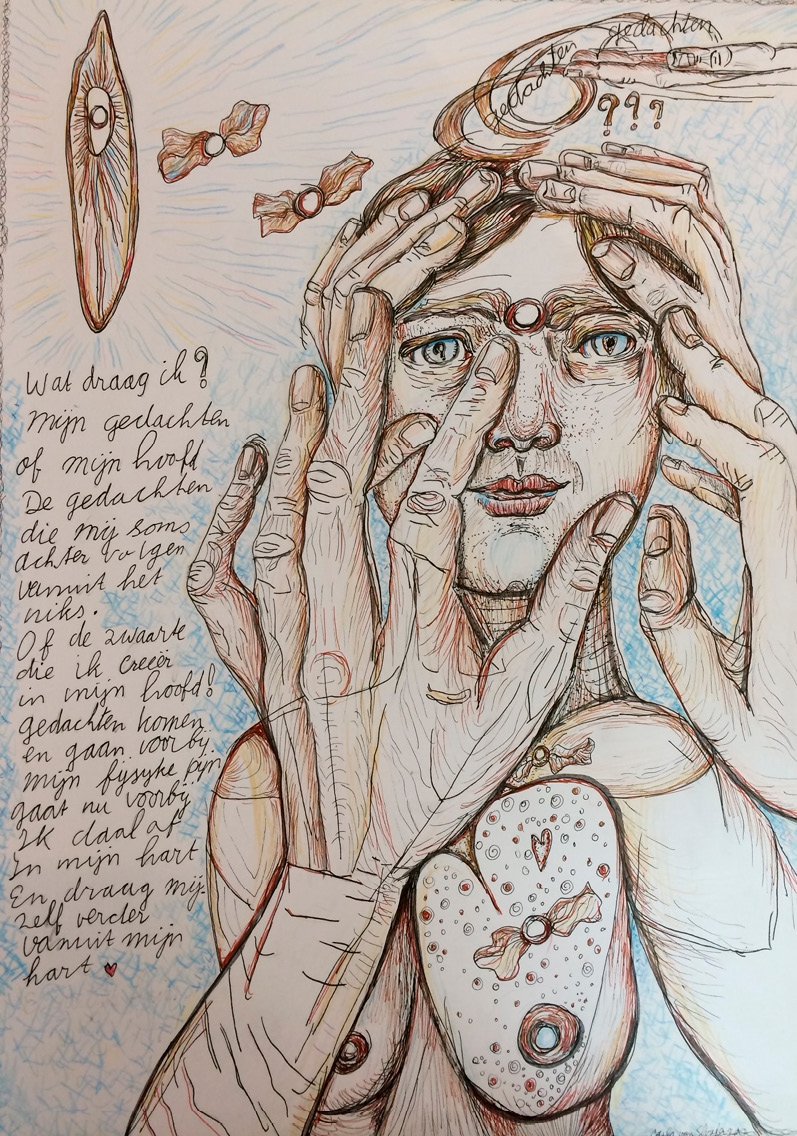 gedachten
gedachten
???
Wat draag ik?
mijn gedachten
of mijn hoofd
De gedachten
die mij soms
achter volgen
vanuit het
niks.
Of de zwaarte
die ik creeër
in mijn hoofd!
gedachten komen
en gaan voorbij.
mijn fijsyke pijn
gaat nu voorbij
Ik daal af
In mijn hart
En draag mij
zelf verder
vanuit mijn
hart